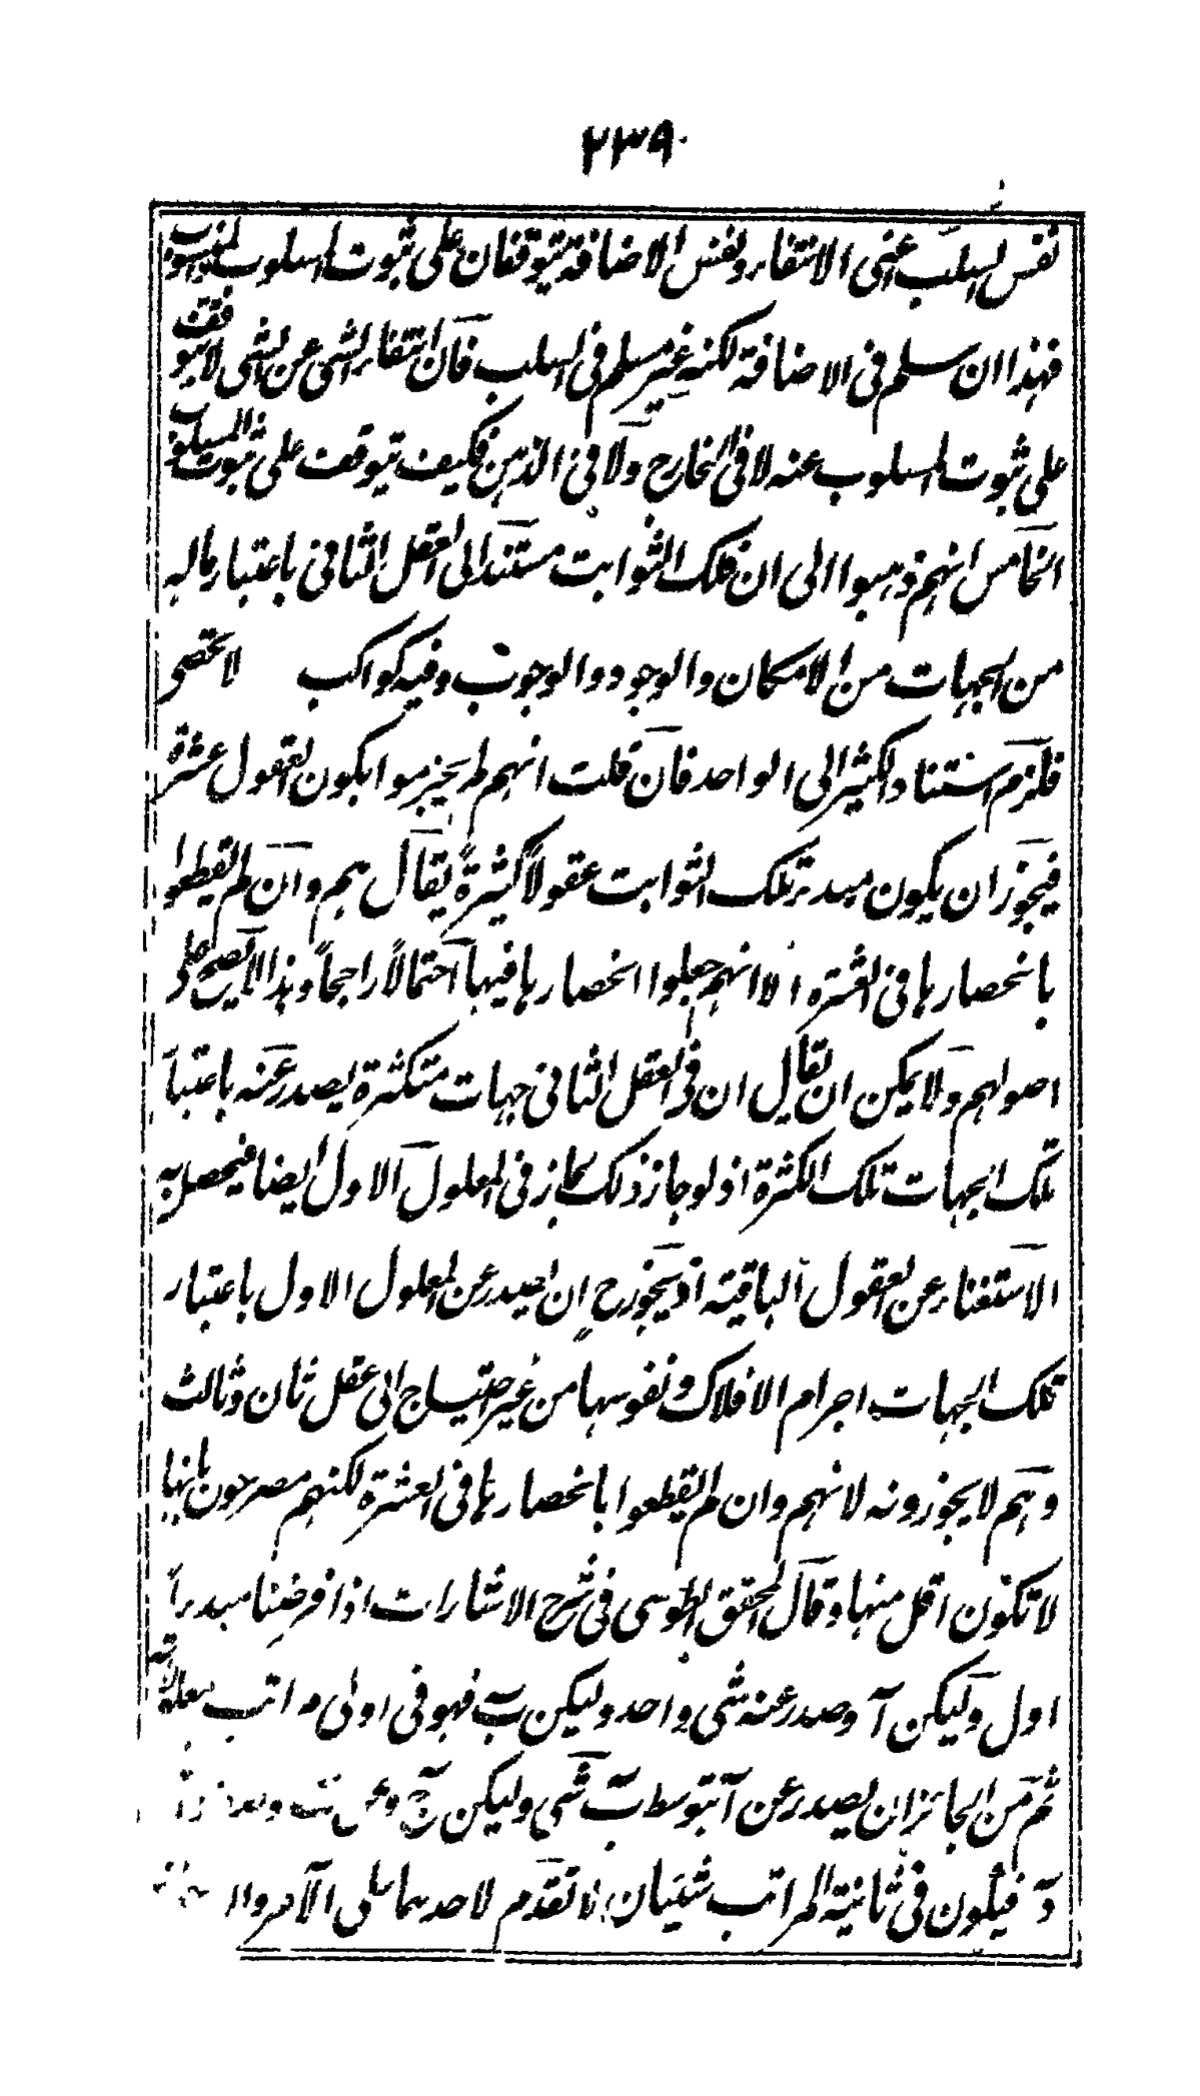 ٢٣٩
نفس السلب اعنى الانتفاء ونفس الاضافة يتوقفان على ثبوت المسلوب والمنسوب
فهذا ان سلم فى الاضافة لكنه غير مسلم فى السلب فان انتفاء الشى عن الشى لا يتوقف
على ثبوت المسلوب عنه لا فى الخارج ولا فى الذهن فكيف يتوقف على ثبوت المسلوب
الخامس انهم ذهبوا الى ان فلك الثوابت مستند الى العقل الثانى باعتبار ماله
من الجهات من الامكان والوجود والوجوب وفيه كواكب لا تحصى
فلزم استناد الكثير الى الواحد فان قلت انهم لم يجزموا بكون العقول عشرة
فيجوز ان يكون مبدء تلك الثوابت عقولاً كثيرةً يقال هم وان لم يقطعوا
بانحصارها فى العشرة الا انهم جعلوا انحصارها فيها احتمالاً راجحاً وهذا لا يصح على
اصولهم ولا يمكن ان يقال ان فى العقل الثانى جهات متكثرة يصدر عنه باعتبا
تلك الجهات تلك الكثرة اذ لو جاز ذلك لجاز فى المعلول الاول ايضا فيحصل به
الاستغناء عن العقول الباقية اذ يجوز ح ان يصدر عن المعلول الاول باعتبار
تلك الجهات اجرام الافلاك ونفوسها من غير احتياج الى عقل ثان وثالث
وهم لا يجوزونه لانهم وان لم يقطعوا بانحصارها فى العشرة لكنهم مصرحون بانها
لا تكون اقل منها وقال المحقق الطوسى فى شرح الاشارات اذا فرضنا مبدءاً
اول وليكن آ وصدر عنه شى واحد وليكن ب فهو فى اولى مراتب معلولاته
ثم من الجائز ان يصدر عن آ بتوسط ب شى وليكن ج وعن ب وحده
د فيكون فى ثانية المراتب شيئان لا تقدم لاحدهما على الآخر وا